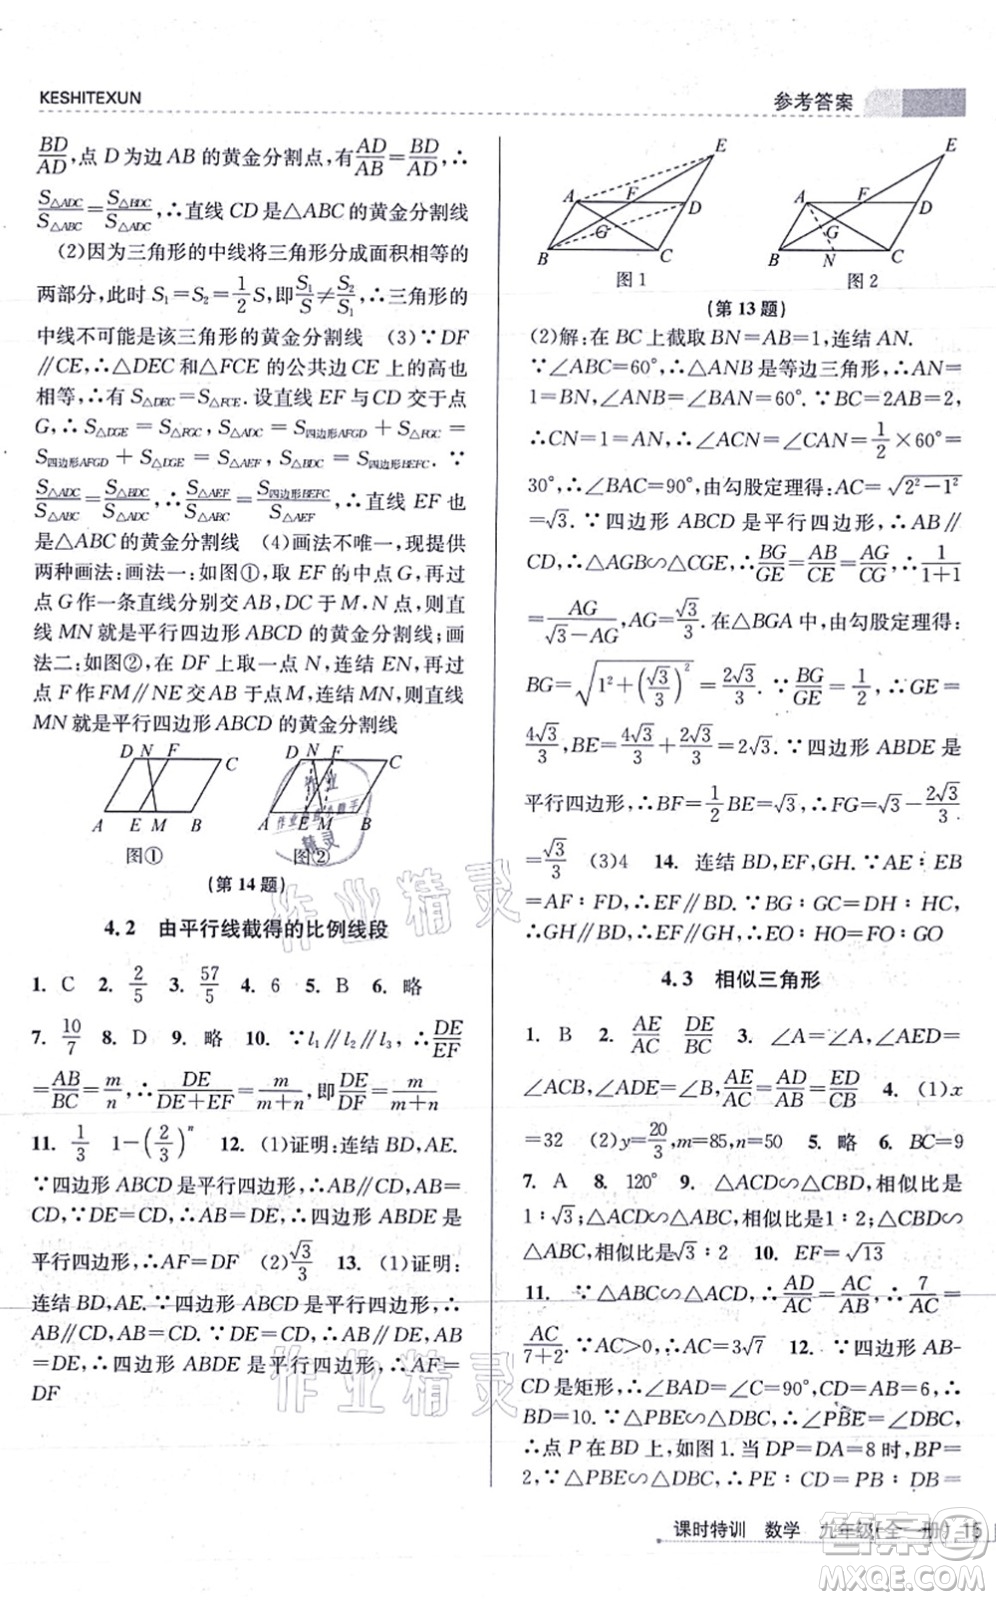 KESHITEXUN
参考答案
BD/AD,点 D 为边 AB 的黄金分割点,有AD/AB=BD/AD,∴
S△ADC/S△ABC=S△BDC/S△ADC,∴直线 CD 是△ABC 的黄金分割线
(2)因为三角形的中线将三角形分成面积相等的
两部分,此时 S₁=S₂=1/2 S,即S₁/S≠S₂/S₁,∴三角形的
中线不可能是该三角形的黄金分割线 (3)∵DF
∥CE,∴△DEC 和△FCE 的公共边 CE 上的高也
相等,∴有 S△DEC=S△FCE. 设直线 EF 与CD 交于点
G,∴ S△DGE = S△FGC, ∴ S△ADC = S四边形AFGD + S△FGC =
S四边形AFGD + S△DGE = S△AEF, S△BDC = S四边形BEFC. ∵
S△ADC/S△ABC=S△BDC/S△ADC,∴S△AEF/S△ABC=S四边形BEFC/S△AEF,∴直线 EF 也
是△ABC 的黄金分割线 (4)画法不唯一,现提供
两种画法:画法一:如图①,取 EF 的中点 G,再过
点 G 作一条直线分别交 AB,DC 于 M、N 点,则直
线 MN 就是平行四边形 ABCD 的黄金分割线;画
法二:如图②,在 DF 上取一点 N,连结 EN,再过
点 F 作 FM∥NE 交 AB 于点M,连结 MN,则直线
MN 就是平行四边形 ABCD 的黄金分割线
D N F C D N F C
A E M B A E M B
图① 图②
(第 14 题)
4.2 由平行线截得的比例线段
1. C 2. 2/5 3. 57/5 4. 6 5. B 6. 略
7. 10/7 8. D 9. 略 10. ∵l₁∥l₂∥l₃,∴DE/EF
=AB/BC=m/n,∴DE/(DE+EF)=m/(m+n),即DE/DF=m/(m+n)
11. 1/3 1-(2/3)ⁿ 12. (1)证明:连结 BD,AE.
∵四边形 ABCD 是平行四边形,∴AB∥CD,AB=
CD,∵DE=CD,∴AB=DE,∴四边形 ABDE 是
平行四边形,∴AF=DF (2)√3/3 13. (1)证明:
连结 BD,AE.∵四边形 ABCD 是平行四边形,∴
AB∥CD,AB=CD,∵DE=CD,∴AB∥DE,AB
=DE,∴四边形 ABDE 是平行四边形,∴AF=
DF
E E
A F D A F D
G G
B C B N C
图 1 图 2
(第 13 题)
(2)解:在 BC 上截取 BN=AB=1,连结 AN.
∵∠ABC=60°,∴△ABN 是等边三角形,∴AN=
1=BN,∠ANB=∠BAN=60°. ∵BC=2AB=2,
∴CN=1=AN,∴∠ACN=∠CAN=1/2×60°=
30°,∴∠BAC=90°,由勾股定理得:AC=√(2²-1²)
=√3. ∵四边形 ABCD 是平行四边形,∴AB∥
CD,∴△AGB∽△CGE,∴BG/GE=AB/CE=AG/CG,∴1/(1+1)
=AG/(√3-AG),AG=√3/3. 在△BGA 中,由勾股定理得:
BG=√(1²+(√3/3)²)=2√3/3. ∵BG/GE=1/2,∴GE=
4√3/3,BE=4√3/3+2√3/3=2√3. ∵四边形 ABDE 是
平行四边形,∴BF=1/2 BE=√3,∴FG=√3-2√3/3
=√3/3 (3)4 14. 连结 BD,EF,GH.∵AE∶EB
=AF∶FD=CG∶GB=CH∶DH=DH∶HC,
4.3 相似三角形
1. B 2. AE/AC DE/BC 3. ∠A=∠A,∠AED=
∠ACB,∠ADE=∠B,AE/AC=AD/AB=ED/CB 4. (1)x
=32 (2)y=20/3,m=85,n=50 5. 略 6. BC=9
7. A 8. 120° 9. △ACD∽△CBD,相似比是
1∶√3;△ACD∽△ABC,相似比是1∶2;△CBD∽
△ABC,相似比是√3∶2 10. EF=√13
11. ∵△ABC∽△ACD,∴AD/AC=AC/AB,∴7/AC=
AC/(7+2). ∵AC>0,∴AC=3√7 12. ∵四边形 AB-
CD 是矩形,∴∠BAD=∠C=90°,CD=AB=6,∴
BD=10. ∵△PBE∽△DBC,∴∠PBE=∠DBC,
∴点 P 在 BD 上,如图 1. 当 DP=DA=8 时,BP=
2,∵△PBE∽△DBC,∴PE∶CD=PB∶DB=
课时特训 数学 九年级(全一册) 15